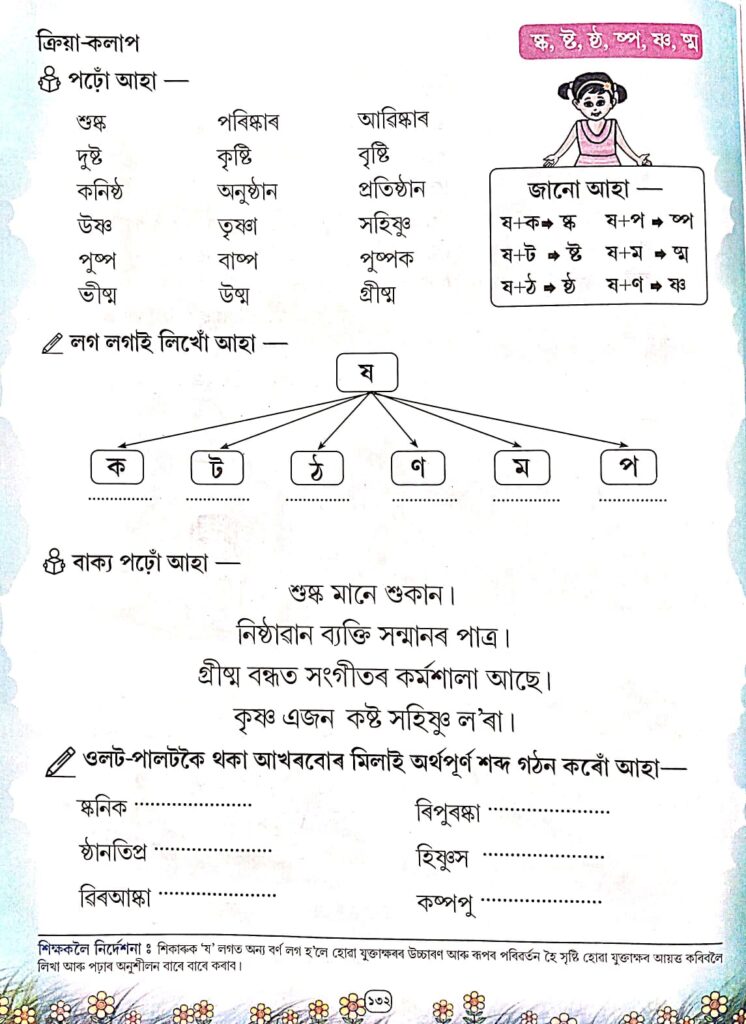 ক্ৰিয়া-কলাপ
ষ্ক, ষ্ট, ষ্ঠ, ষ্প, ষ্ণ, ষ্ম
পঢ়োঁ আহা —
শুষ্ক পৰিষ্কাৰ আৱিষ্কাৰ
দুষ্ট কৃষ্টি বৃষ্টি
কনিষ্ঠ অনুষ্ঠান প্ৰতিষ্ঠান
উষ্ণ তৃষ্ণা সহিষ্ণু
পুষ্প বাষ্প পুষ্পক
ভীষ্ম উষ্ম গ্ৰীষ্ম
জানো আহা —
ষ+ক➡ ষ্ক ষ+প ➡ ষ্প
ষ+ট ➡ ষ্ট ষ+ম ➡ ষ্ম
ষ+ঠ ➡ ষ্ঠ ষ+ণ ➡ ষ্ণ
লগ লগাই লিখোঁ আহা —
ষ
ক ট ঠ ণ ম প
.............. .............. .............. .............. .............. ..............
বাক্য পঢ়োঁ আহা —
শুষ্ক মানে শুকান।
নিষ্ঠাৱান ব্যক্তি সন্মানৰ পাত্ৰ।
গ্ৰীষ্ম বন্ধত সংগীতৰ কৰ্মশালা আছে।
কৃষ্ণ এজন কষ্ট সহিষ্ণু ল’ৰা।
ওলট-পালটকৈ থকা আখৰবোৰ মিলাই অৰ্থপূৰ্ণ শব্দ গঠন কৰোঁ আহা—
ষ্কনিক ...................... ৰিপুৰষ্কা ......................
ষ্ঠানতিপ্ৰ ...................... হিষ্ণুস ......................
ৱিৰআষ্কা ...................... কষ্পপু ......................
শিক্ষকলৈ নিৰ্দেশনা ঃ শিকাৰুক ‘ষ’ লগত অন্য বৰ্ণ লগ হ’লে হোৱা যুক্তাক্ষৰৰ উচ্চাৰণ আৰু ৰূপৰ পৰিৱৰ্তন হৈ সৃষ্টি হোৱা যুক্তাক্ষৰ আয়ত্ত কৰিবলৈ
লিখা আৰু পঢ়াৰ অনুশীলন বাৰে বাৰে কৰাব।
১৩২